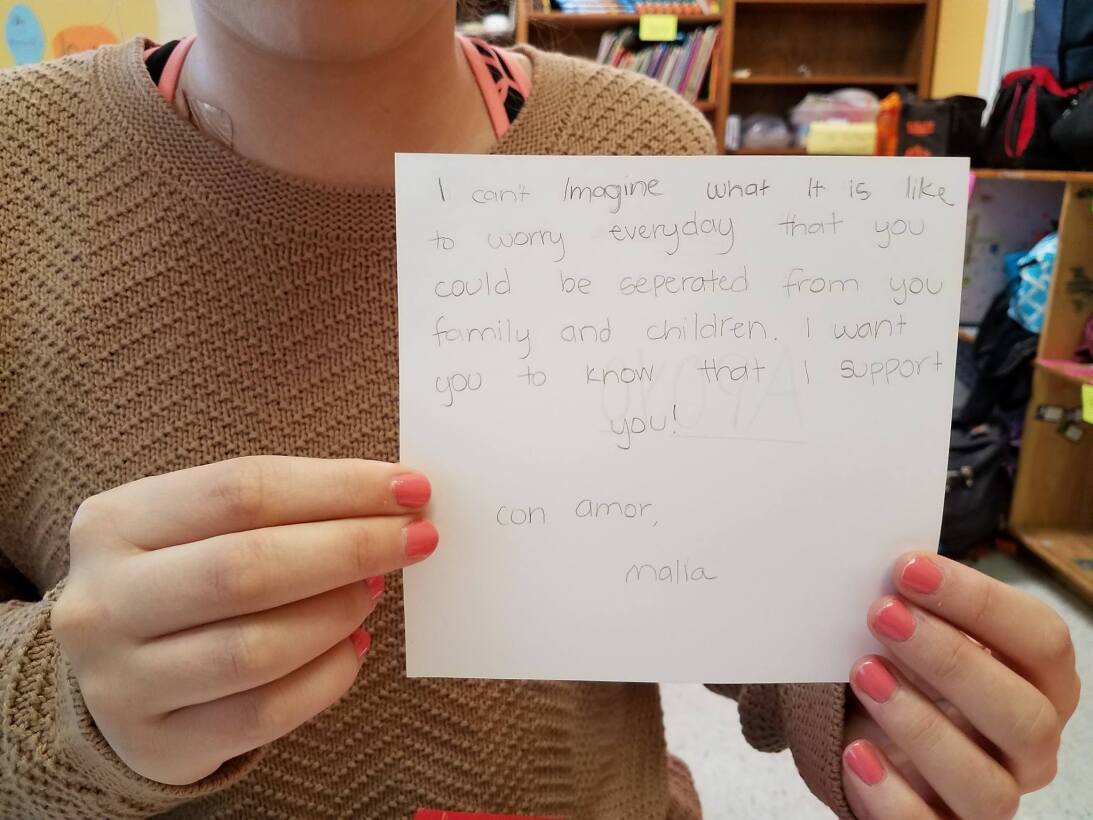 I can't Imagine what It is like
to worry everyday that you
could be seperated from you
family and children. I want
you to know that I support
you!
con amor,
malia
APOYO